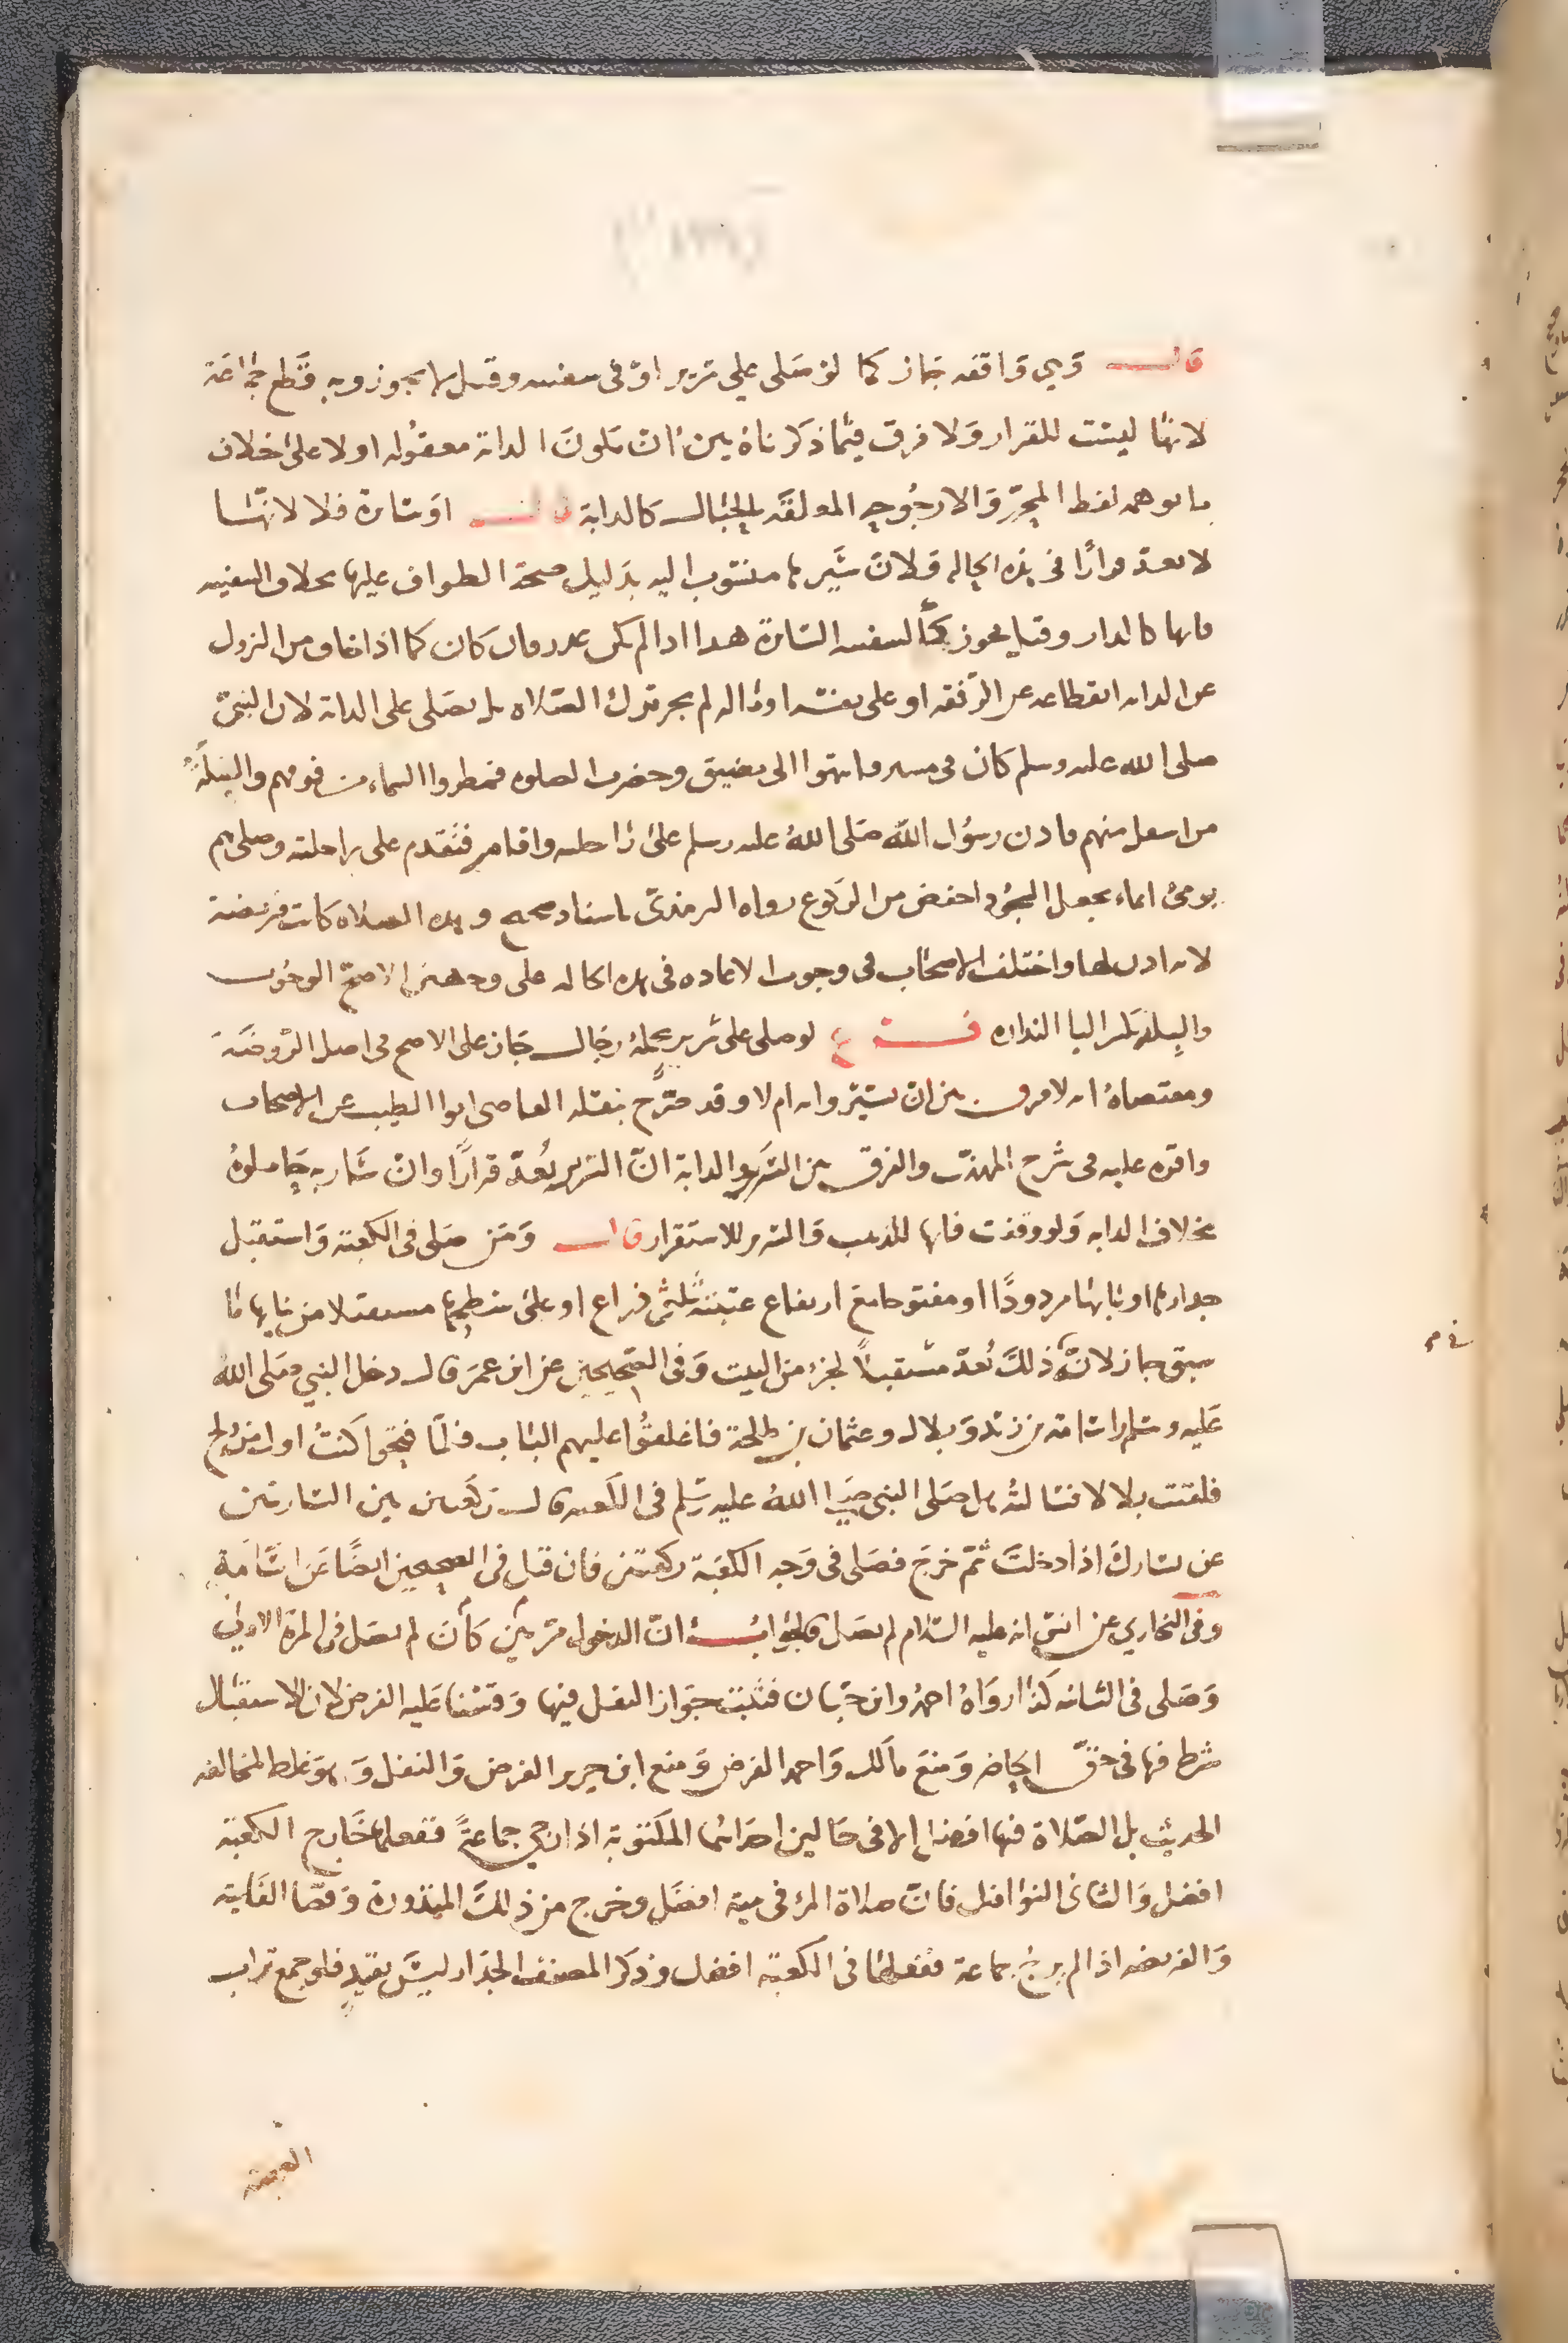 قال وهي واقفه جاز كما لو صلى علي سرير او في سفينه وقيل لا يجوز وبه قطع جماعة
لانها ليست للقرار ولا فرق فيما ذكرناه بين ان تكون الدابة معقوله او لا على خلاف
ما يوهمه لفظ المحرر والارجوحه المعلقه بالحبال كالدابة قال او سائرة فلا لانها
لا تعد قرارا في هذه الحاله ولان سيرها منسوب اليه بدليل صحة الطواف عليها بخلاف السفينه
فانها كالدار وقيل يجوز كالسفينه السائرة هذا اذا لم يكن عذر فان كان كما اذا خاف من النزول
عن الدابه انقطاعه عن الرفقه او على نفسه او ماله لم يجز ترك الصلاه بل يصلى على الدابة لان النبي
صلى الله عليه وسلم كان في مسير فانتهوا الى مضيق وحضرت الصلوه فمطروا السماء من فوقهم والبلة
من اسفل منهم فاذن رسول الله صلى الله عليه وسلم على راحلته واقام فتقدم على راحلته وصلى بهم
يومئ ايماء يجعل السجود اخفض من الركوع رواه الترمذي باسناد صحيح وهذه الصلاه كانت فريضة
لانه اذن لها واختلف الاصحاب في وجوب الاعاده في هذه الحاله على وجهين الاصح الوجوب
والبلة بكسر البا النداوه فرع لو صلى على سرير يحمله رجال جاز على الاصح في اصل الروضة
ومقتضاه انه لا فرق بين ان يسيروا به ام لا وقد صرح بنقله القاضي ابوا الطيب عن الاصحاب
واقره عليه في شرح المهذب والفرق بين السرير والدابة ان السرير يعد قرارا وان سار به حاملوه
بخلاف الدابه ولو وقفت فانها للذهب والسرير للاستقرار قال ومن صلى في الكعبة واستقبل
جدارها او بابها مردودًا او مفتوحا مع ارتفاع عتبته ثلثى ذراع او على سطحها مستقبلا من بنايها ما
سبق جاز لانه ذلك يعد مستقبلا لجزء من البيت وفي الصحيحين عن ابن عمر قال دخل النبي صلى الله
عليه وسلم واسامة بن زيد وبلال وعثمان بن طلحة فاغلقوا عليهم الباب فلما فتحوا كنت اول من ولج
فلقيت بلالا فسالته هل صلى النبي صلى الله عليه وسلم في الكعبه قال ركعتين بين الساريتين
عن يسارك اذا دخلت ثم خرج فصلى في وجه الكعبة ركعتين فان قيل في الصحيحين ايضا عن اسامة
وفي البخاري عن انس انه عليه السلام لم يصل فالجواب ان الدخول مرتين كان لم يصل في المرة الاولى
وصلى في الثانيه كذا رواه احمد وابن حبان فثبت جواز النفل فيها وقسنا عليه الفرض لان الاستقبال
شرط فيها في حق الحاضر ومنع مالك واحمد الفرض ومنع ابن جرير الفرض والنفل وهو غلط لمخالفه
الحديث بل الصلاة فيها افضل الا في حالين احداهما المكتوبة اذا رجي جماعة ففعلها خارج الكعبة
افضل والثانى النوافل فان صلاة المرء في بيته افضل وخرج من ذلك المنذورة وقضا الفايته
والفريضه اذا لم يرج جماعة ففعلها في الكعبة افضل وذكر المصنف الجدار ليس بقيد فلو جمع تراب
العرصة